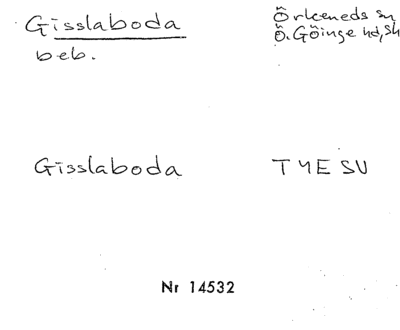 Gisslaboda
Örkeneds sn
beb.
Ö. Göinge hd, Sk
Gisslaboda
T Y E SV
Nr 14532